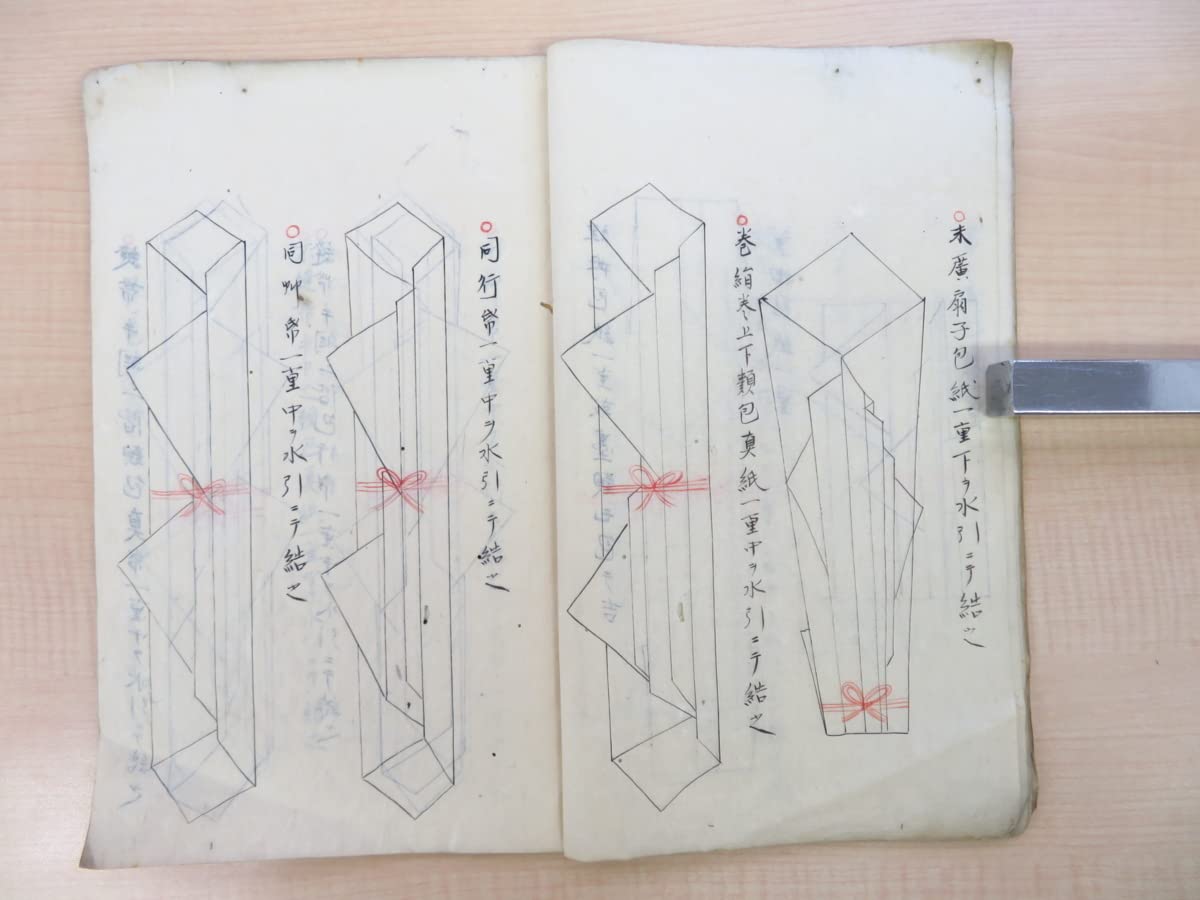 ○末廣扇子包紙一重下ヲ水引ニテ結之
○巻絹巻上下類包真紙一重中ヲ水引ニテ結之
○同行帋一重中ヲ水引ニテ結之
○同艸帋一重中ヲ水引ニテ結之